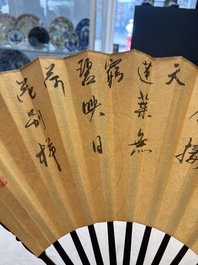 接
天
蓮葉無
窮
碧映日
荷
花別樣